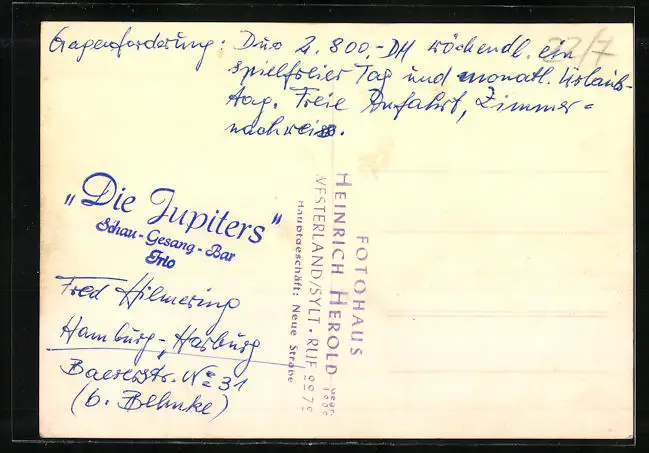 Gagenforderung: Duo 2.800,-DM wöchendl. ein
22/7
spielfreier Tag und monatl. Urlaubs-
tag. Freie Anfahrt, Zimmer=
nachweiss.
"Die Jupiters"
Schau-Gesang-Bar
Trio
Fred Hilmering
Hamburg-Harburg
Baererstr. No 31
(b. Behnke)
FOTOHAUS
HEINRICH HEROLD gegr.
WESTERLAND/SYLT · RUF
Hauptgeschäft: Neue Straße